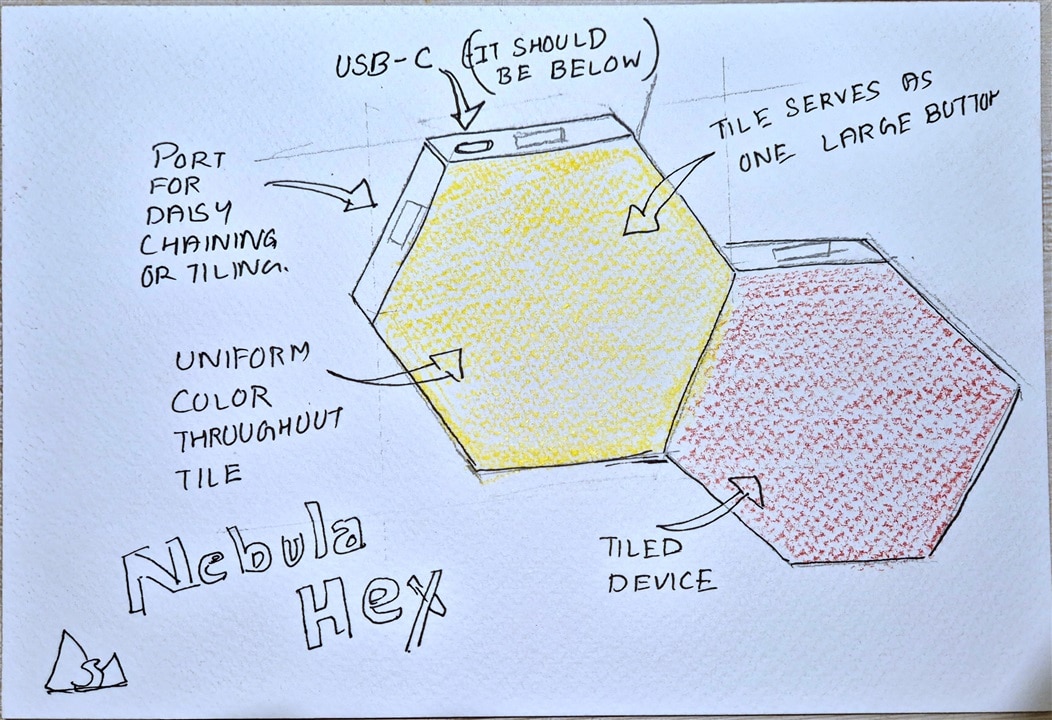 USB-C (IT SHOULD
BE BELOW)
TILE SERVES AS
ONE LARGE BUTTON
PORT
FOR
DAISY
CHAINING
OR TILING.
UNIFORM
COLOR
THROUGHOUT
TILE
TILED
DEVICE
Nebula
Hex